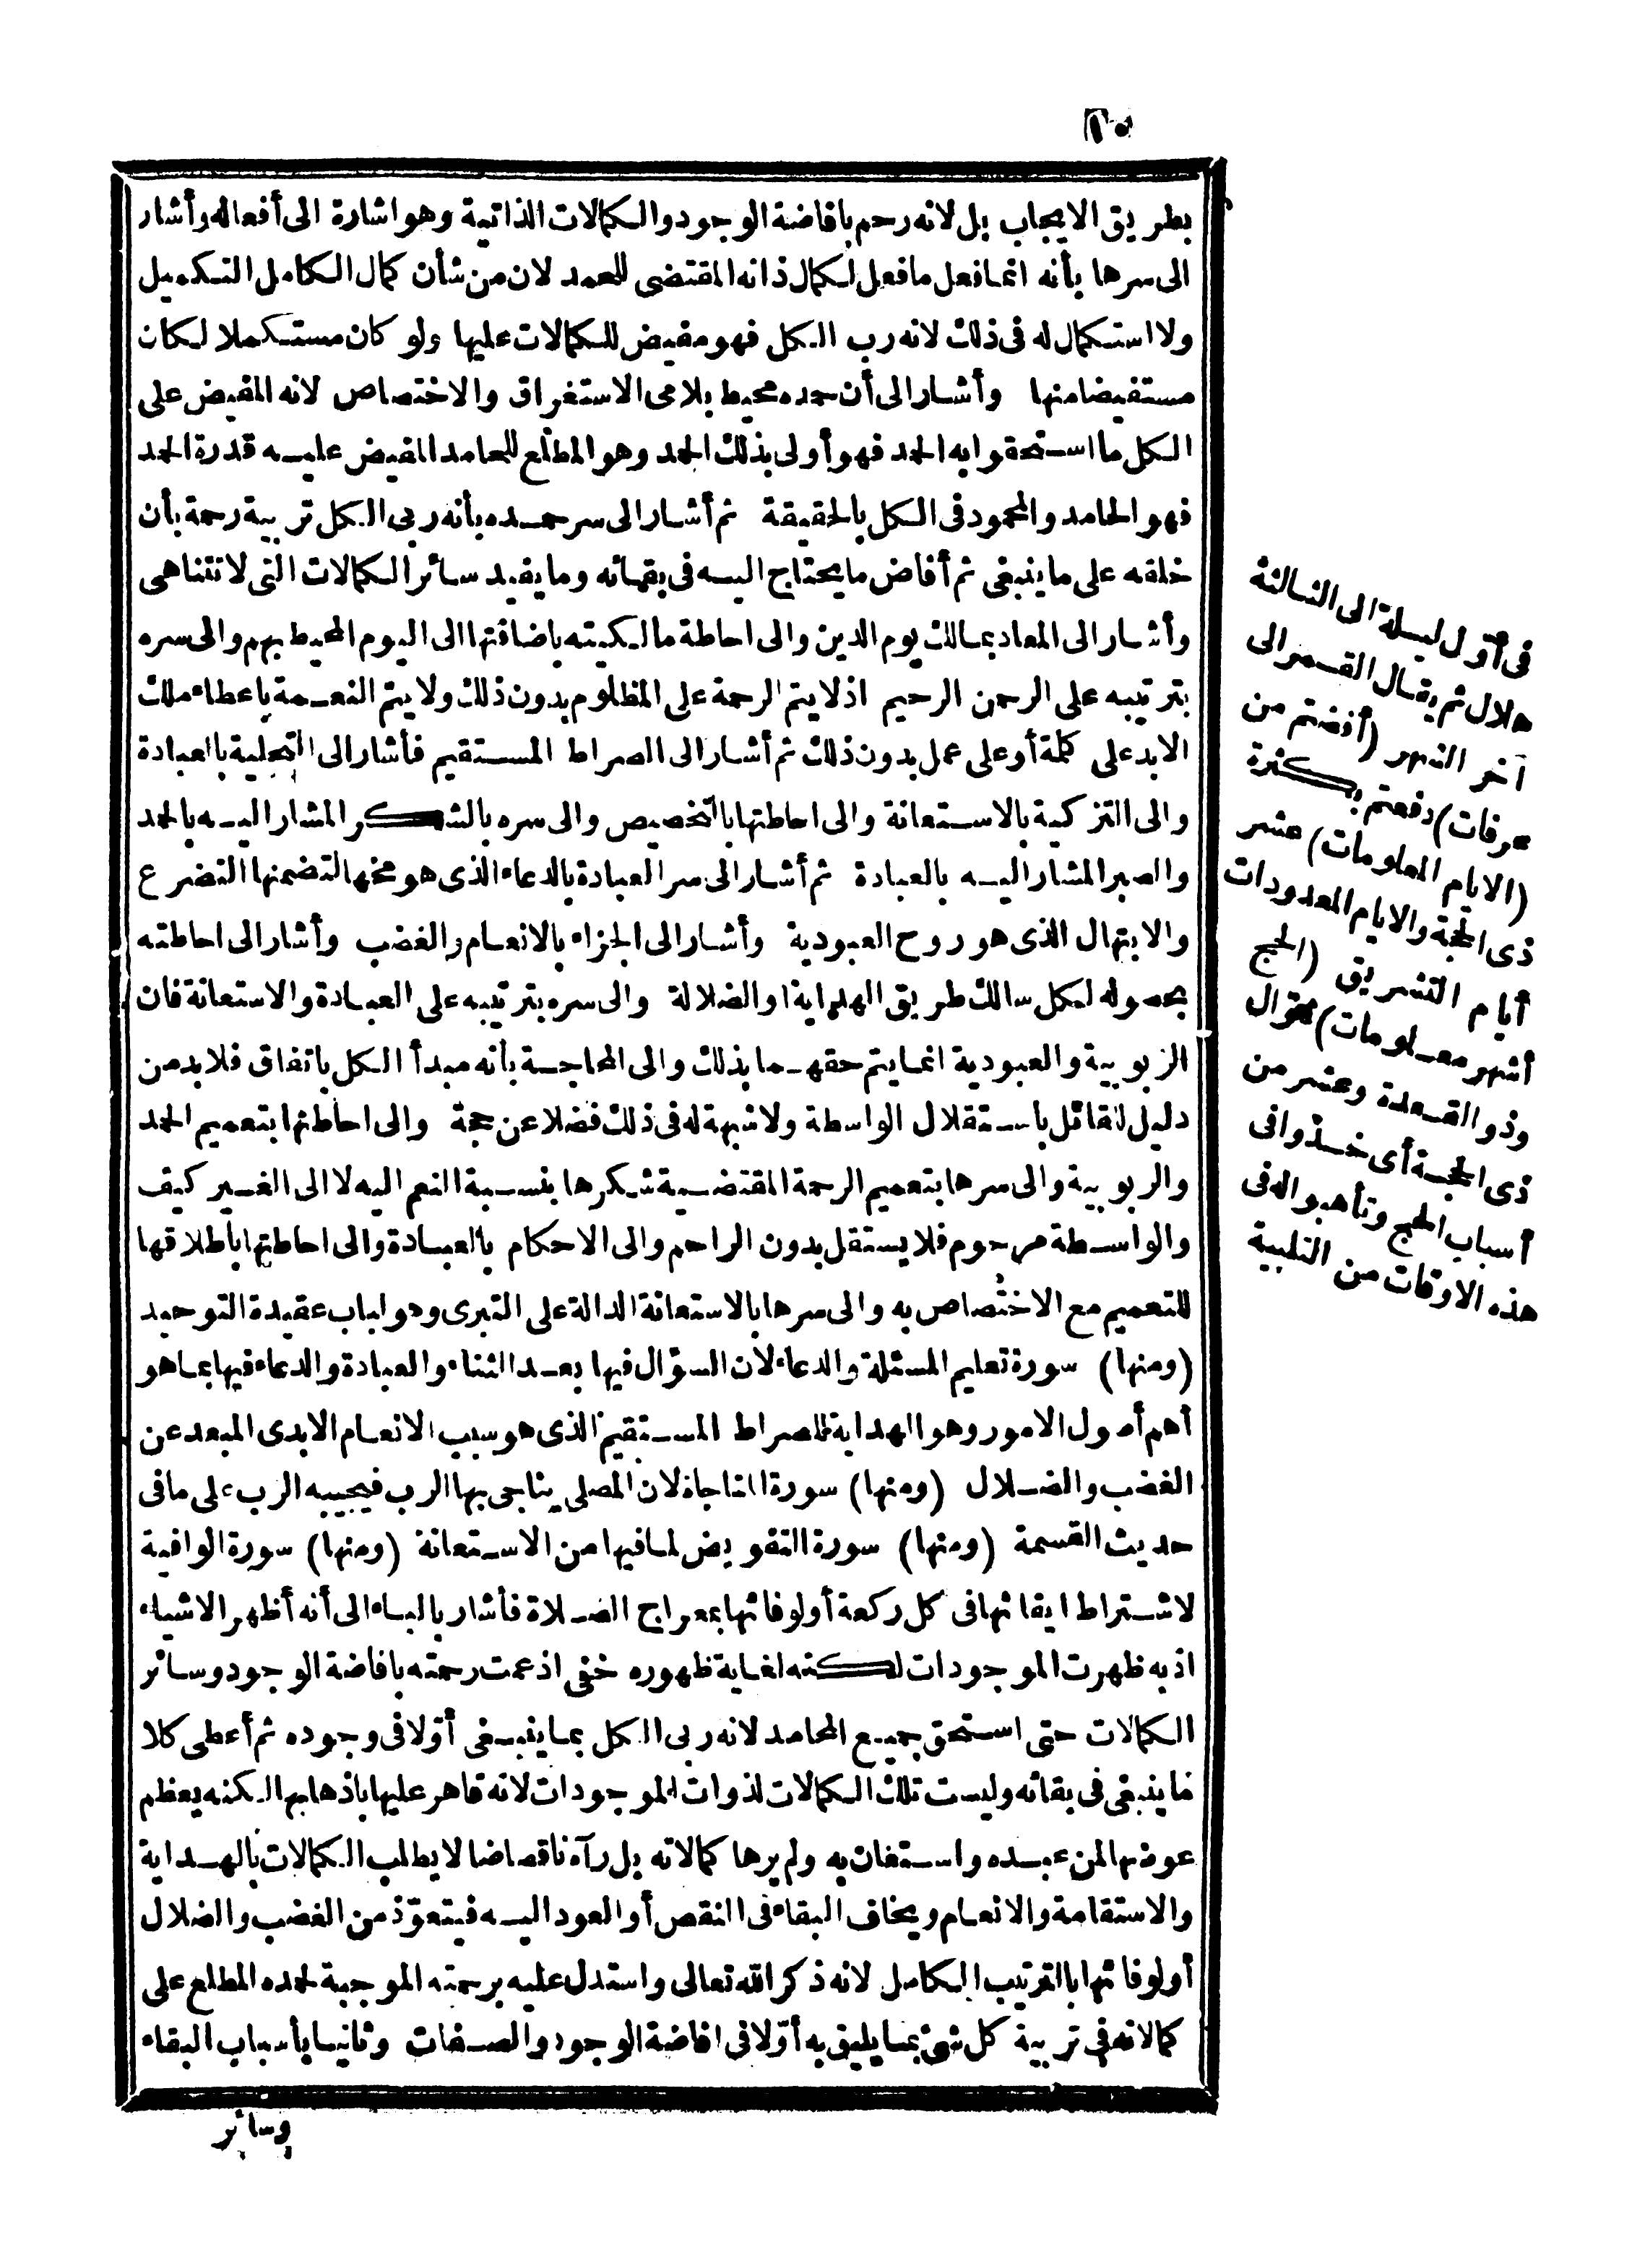 ٢٠
بطريق الايجاب بل لانه رحم بافاضة الوجود والكمالات الذاتية وهو اشارة الى أفعاله وأشار
الى سرها بأنه انما فعل ما فعل لكمال ذاته المقتضى للحمد لان من شأن كمال الكامل التكميل
ولا استكمال له فى ذلك لانه رب الكل فهو مفيض للكمالات عليها ولو كان مستكملا لكان
مستفيضا منها وأشار الى أن حمده محيط بلامى الاستغراق والاختصاص لانه المفيض على
الكل ما استحقوا به الحمد فهو أولى بذلك الحمد وهو المطلع للحامد المفيض عليه قدرة الحمد
فهو الحامد والمحمود فى الكل بالحقيقة ثم أشار الى سر حمده بأنه ربى الكل تربية رحمة بأن
خلقه على ما ينبغى ثم أفاض ما يحتاج اليه فى بقائه وما يفيد سائر الكمالات التى لا تتناهى
وأشار الى المعاد بمالك يوم الدين والى احاطة مالكيته باضافتها الى اليوم المحيط بهم والى سره
بترتيبه على الرحمن الرحيم اذ لا يتم الرحمة على المظلوم بدون ذلك ولا يتم النعمة باعطاء ملك
الابد على كلمة أو على عمل بدون ذلك ثم أشار الى الصراط المستقيم فأشار الى التحلية بالعبادة
والى التزكية بالاستعانة والى احاطتها بالتخصيص والى سره بالشكر المشار اليه بالحمد
والصبر المشار اليه بالعبادة ثم أشار الى سر العبادة بالدعاء الذى هو مخها لتضمنها التضرع
والابتهال الذى هو روح العبودية وأشار الى الجزاء بالانعام والغضب وأشار الى احاطته
بحصوله لكل سالك طريق الهداية او الضلالة والى سره بترتيبه على العبادة والاستعانة فان
الربوبية والعبودية انما يتم حقهما بذلك والى المحاجة بأنه مبدأ الكل باتفاق فلا بد من
دليل لقائل باستقلال الواسطة ولا شبهة له فى ذلك فضلا عن حجة والى احاطتها بتعميم الحمد
والربوبية والى سرها بتعميم الرحمة المقتضية شكرها بنسبة النعم اليه لا الى الغير كيف
والواسطة مرحوم فلا يستقل بدون الراحم والى الاحكام بالعبادة والى احاطتها باطلاقها
للتعميم مع الاختصاص به والى سرها بالاستعانة الدالة على التبرى وهو لباب عقيدة التوحيد
(ومنها) سورة تعليم المسئلة والدعاء لان السؤال فيها بعد الثناء والعبادة والدعاء فيها بما هو
أهم أصول الامور وهو الهداية للصراط المستقيم الذى هو سبب الانعام الابدى المبعد عن
الغضب والضلال (ومنها) سورة المناجاة لان المصلى يناجى بها الرب فيجيبه الرب على ما فى
حديث القسمة (ومنها) سورة التفويض لما فيها من الاستعانة (ومنها) سورة الوافية
لاشتراط ايفائها فى كل ركعة أو لوفائها بمعراج الصلاة فأشار بالباء الى أنه أظهر الاشياء
اذ به ظهرت الموجودات لكنه لغاية ظهوره خفى اذ عمت رحمته بافاضة الوجود وسائر
الكمالات حتى استحق جميع المحامد لانه ربى الكل بما ينبغى أوّلا فى وجوده ثم أعطى كلا
ما ينبغى فى بقائه وليست تلك الكمالات لذوات الموجودات لانه قاهر عليها باذهابها لكنه يعظم
عوضها لمن عبده واستعان به ولم يرها كمالاته بل رآه ناقصا ضالا يطلب الكمالات بالهداية
والاستقامة والانعام ويخاف البقاء فى النقص أو العود اليه فيتعوّذ من الغضب والضلال
أو لوفائها بالترتيب الكامل لانه ذكر الله تعالى واستدل عليه برحمته الموجبة لحمده المطلع على
كمالاته فى تربية كل شئ بما يليق به أوّلا فى افاضة الوجود والصفات وثانيا بأسباب البقاء
وسائر
فى أوّل ليلة الى الثالثة
هلال ثم يقال القمر الى
آخر الشهر (أفضتم من
عرفات) دفعتم بكثرة
(الايام المعلومات) عشر
ذى الحجة والايام المعدودات
أيام التشريق (الحج
أشهر معلومات) شوال
وذو القعدة وعشر من
ذى الحجة أى خذوا فى
أسباب الحج وتأهبوا له فى
هذه الاوقات من التلبية